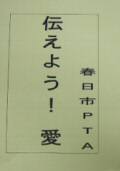 伝えよう！愛
春日市PTA